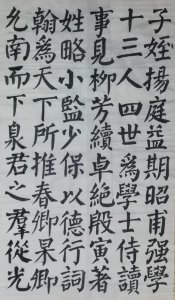 子姪揚庭益期昭甫强學
十三人四世為學士侍讀
事見柳芳續卓絕殷寅著
姓略小監少保以德行詞
翰為天下所推春卿杲卿
允南而下泉君之羣從光